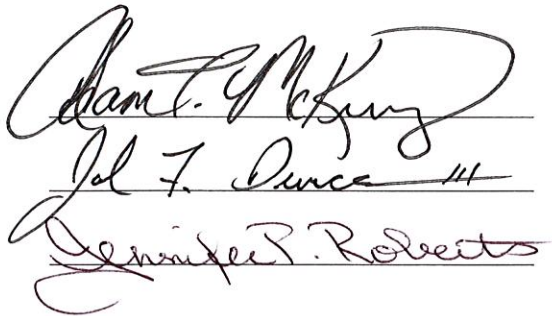 Adam T. McKinney
J F. Duncan III
Jennifer P. Roberts